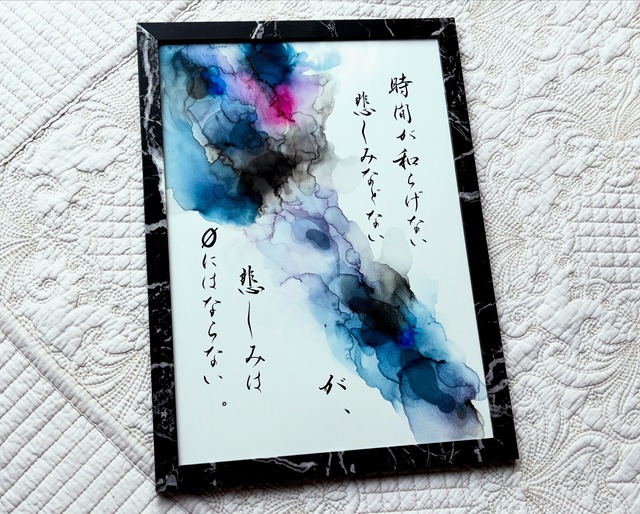 時間が和らげない
悲しみなどない
が、
悲しみは
0にはならない。